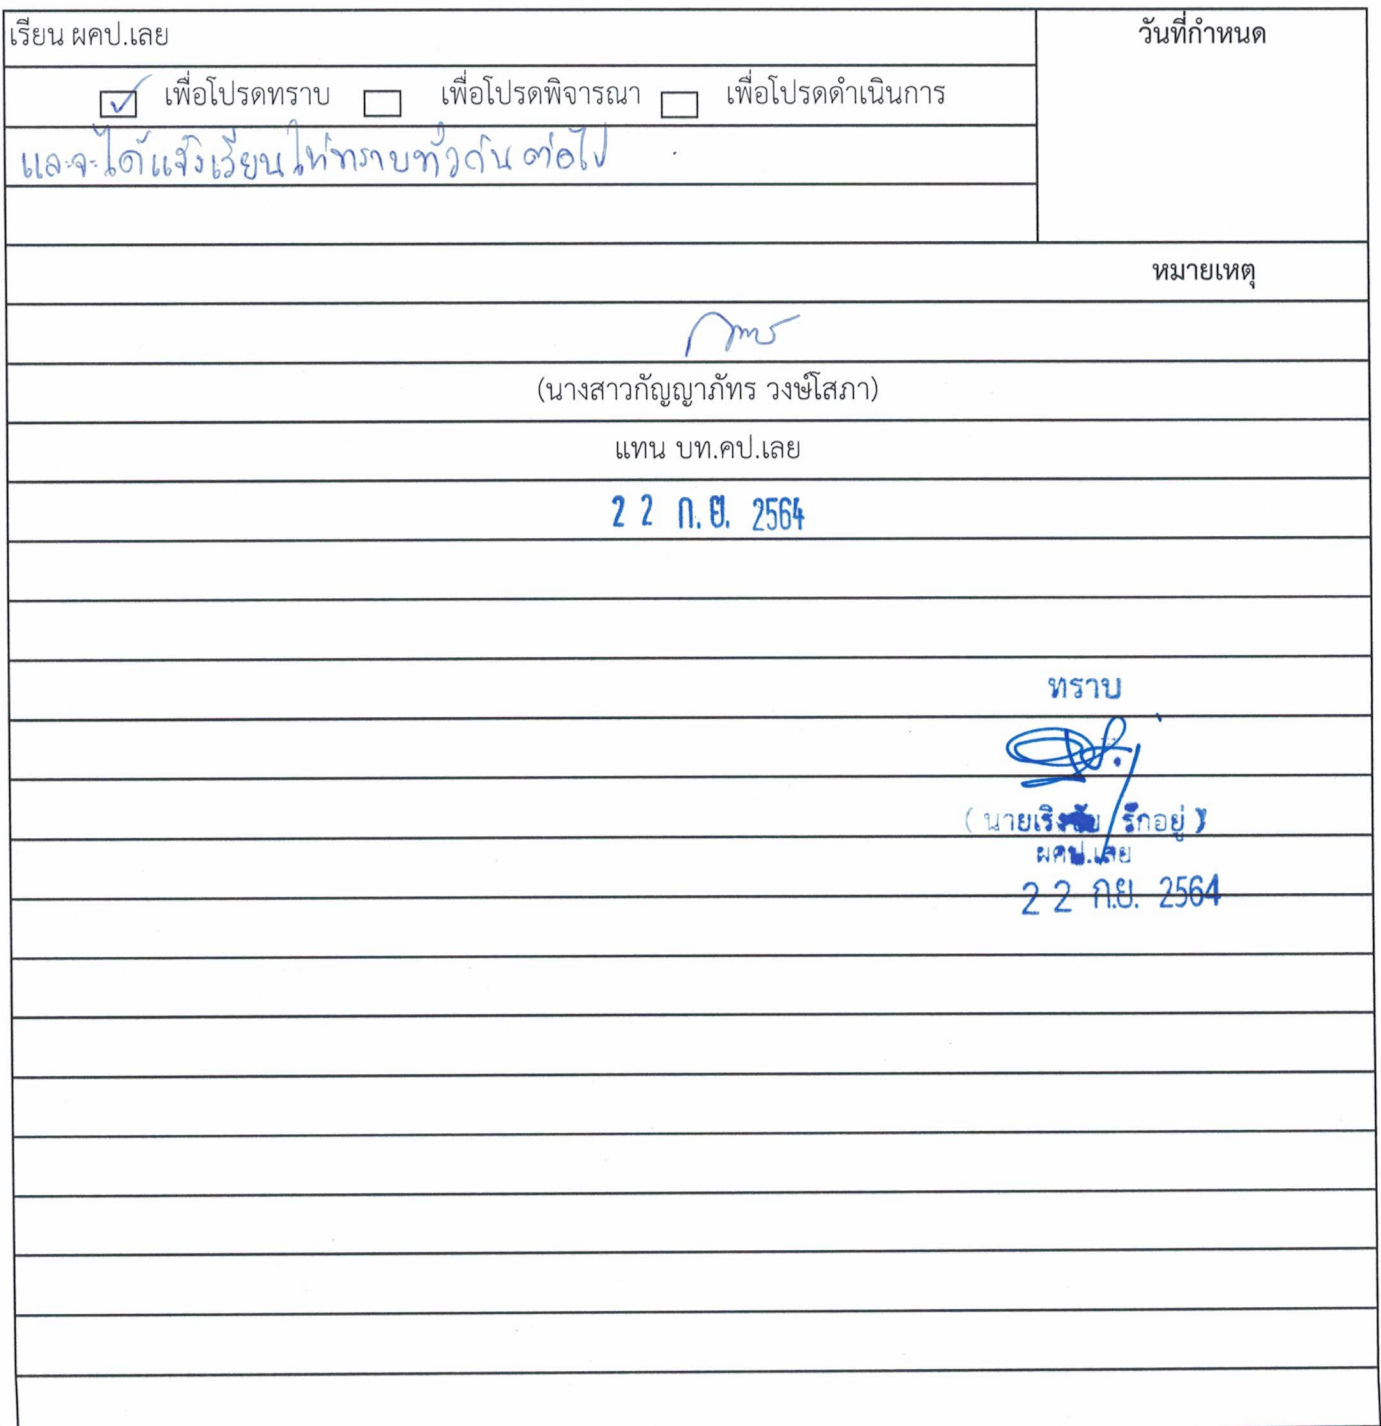 เรียน ผคป.เลย
วันที่กำหนด
เพื่อโปรดทราบ เพื่อโปรดพิจารณา เพื่อโปรดดำเนินการ
และจะได้แจ้งเวียนให้ทราบทั่วกันต่อไป
หมายเหตุ
(นางสาวกัญญาภัทร วงษ์โสภา)
แทน บท.คป.เลย
2 2 ก.ย. 2564
ทราบ
( นาย รักอยู่ )
ผคป.เลย
2 2 ก.ย. 2564